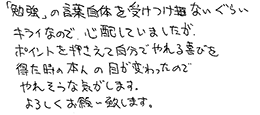 「勉強」の言葉自体を受けつけないぐらい
キライなので、心配していましたが、
ポイントを押さえて自分でやれる喜びを
得た時の本人の目が変わったので
やれそうな気がします。
よろしくお願い致します。